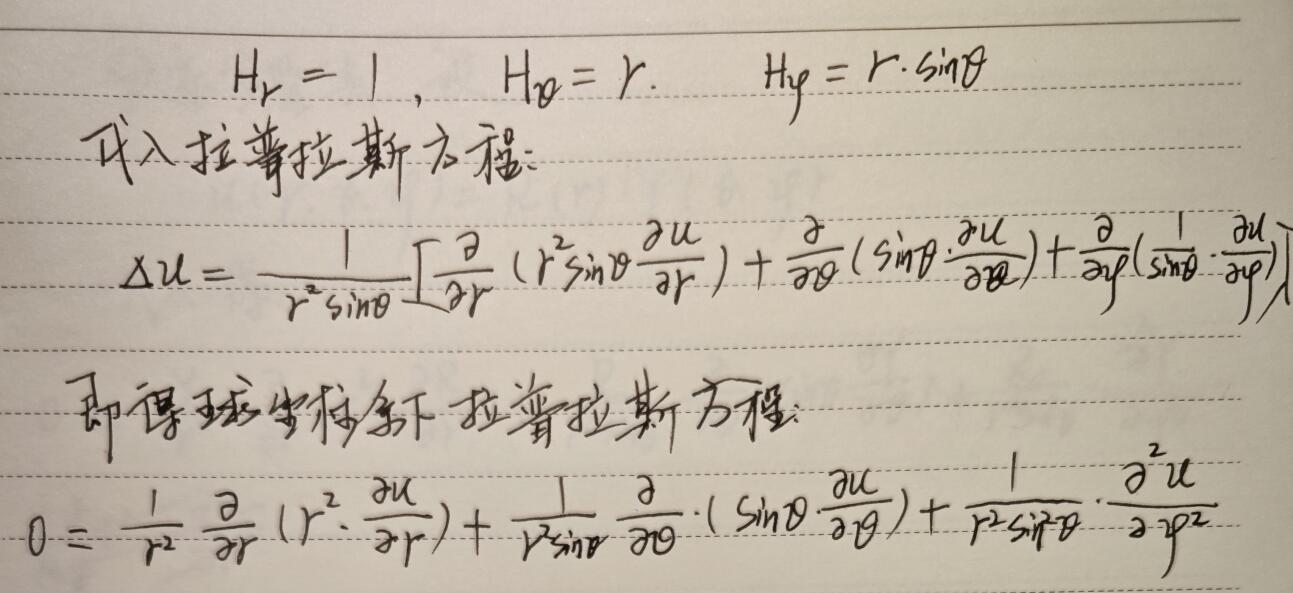 H_r = 1, H_θ = r. H_φ = r·sinθ
代入拉普拉斯方程:
Δu = \frac{1}{r² sinθ} [ \frac{∂}{∂r} (r² sinθ \frac{∂u}{∂r}) + \frac{∂}{∂θ} (sinθ · \frac{∂u}{∂θ}) + \frac{∂}{∂φ} (\frac{1}{sinθ} · \frac{∂u}{∂φ}) ]
即得球坐标系下拉普拉斯方程:
0 = \frac{1}{r²} \frac{∂}{∂r} (r² · \frac{∂u}{∂r}) + \frac{1}{r² sinθ} \frac{∂}{∂θ} · (sinθ · \frac{∂u}{∂θ}) + \frac{1}{r² sin²θ} · \frac{∂²u}{∂φ²}